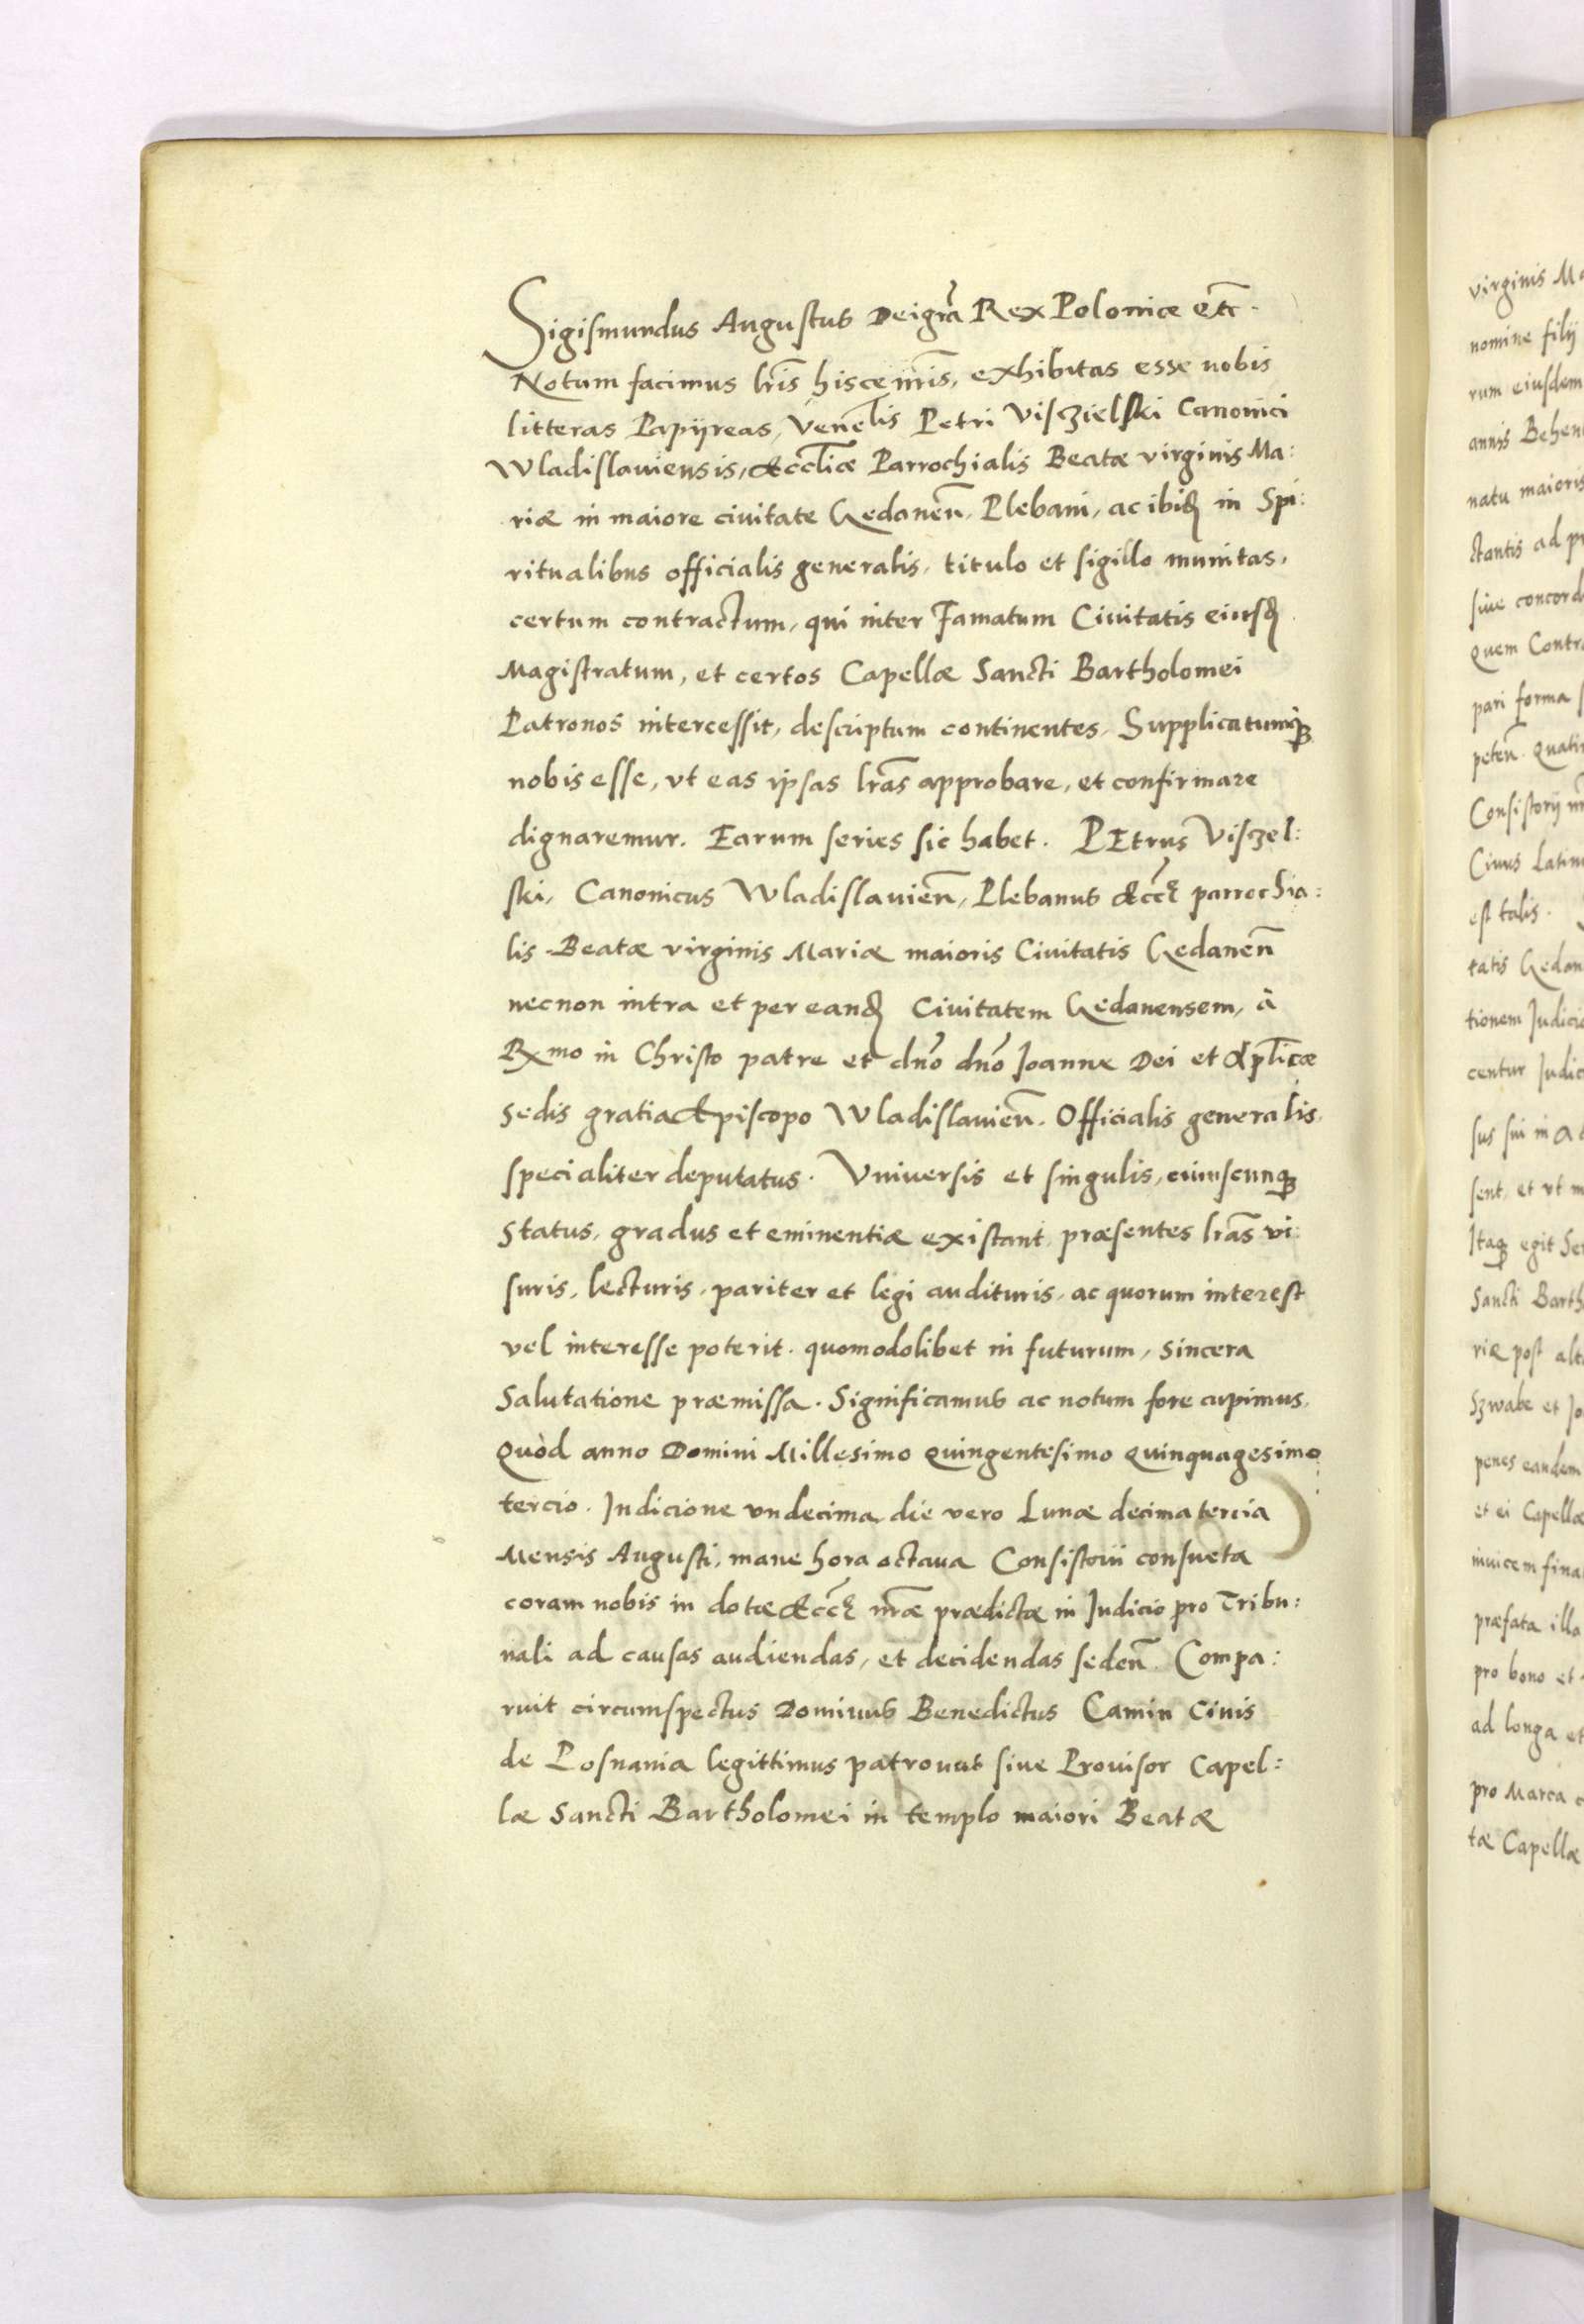 Sigismundus Augustus Dei gr̃a Rex Poloniæ etc̃.
Notum facimus lr̃is hisce nr̃is, exhibitas esse nobis
litteras Papyreas, Venel̃is Petri Visczielski Canonici
Wladislauiensis, Eccl̃iæ Parrochialis Beatæ virginis Ma:
riæ in maiore ciuitate Gedanen̄, Plebani, ac ibid̨ in Spi:
ritualibus officialis generalis, titulo et sigillo munitas,
certum contractum, qui inter Famatum Ciuitatis eiusd̨
Magistratum, et certos Capellæ Sancti Bartholomei
Patronos intercessit, descriptum continentes, Supplicatumq̨
nobis esse, vt eas ipsas lr̃as approbare, et confirmare
dignaremur. Earum series sic habet. PEtrus Visczel:
ski, Canonicus Wladislauien̄, Plebanus Ecc̃l parrochia:
lis Beatæ virginis Mariæ maioris Ciuitatis Gedanen̄
necnon intra et per eand̨ Ciuitatem Gedanensem, à
Rx̃mo in Christo patre et dn̄o dn̄o Joanne Dei et Apl̃icæ
Sedis gratia Episcopo Wladislauien̄. Officialis generalis,
specialiter deputatus. Vniuersis et singulis, cuiuscunq̨
Status, gradus et eminentiæ existant, præsentes lr̃as vi:
suris, lecturis, pariter et legi audituris, ac quorum interest
vel interesse poterit. quomodolibet in futurum, Sincera
Salutatione præmissa. Significamus ac notum fore cupimus,
Quòd anno Domini Millesimo quingentesimo quinquagesimo
tercio. Indicione vndecima die vero Lunæ decima tercia
Mensis Augusti, mane hora octaua Consistorii consueta
coram nobis in dotæ Ecc̃l nr̃æ prædictæ in Judicio pro Tribu:
nali ad causas audiendas, et decidendas seden̄. Compa:
ruit circumspectus Dominus Benedictus Camin Ciuis
de Posnania legittimus patronus siue Prouisor Capel:
læ Sancti Bartholomei in templo maiori Beatæ
virginis Ma
nomine filij
rum eiusdem
natu maioris
ctantis ad pr
siue concord
quem Contra
pari forma
peten̄. Quati
Ciuis Latin
est talis.
tatis Gedan
tionem Judici
centur Judic
sus sui in A
sent, et vt m
Itaq̨ egit Se
Sancti Barth
riæ post alt
Szwabe et Jo
penes eandem
et ei Capellæ
inuicem fina
præfata illa
pro bono et
ad longa et
pro Marca
tæ Capellæ